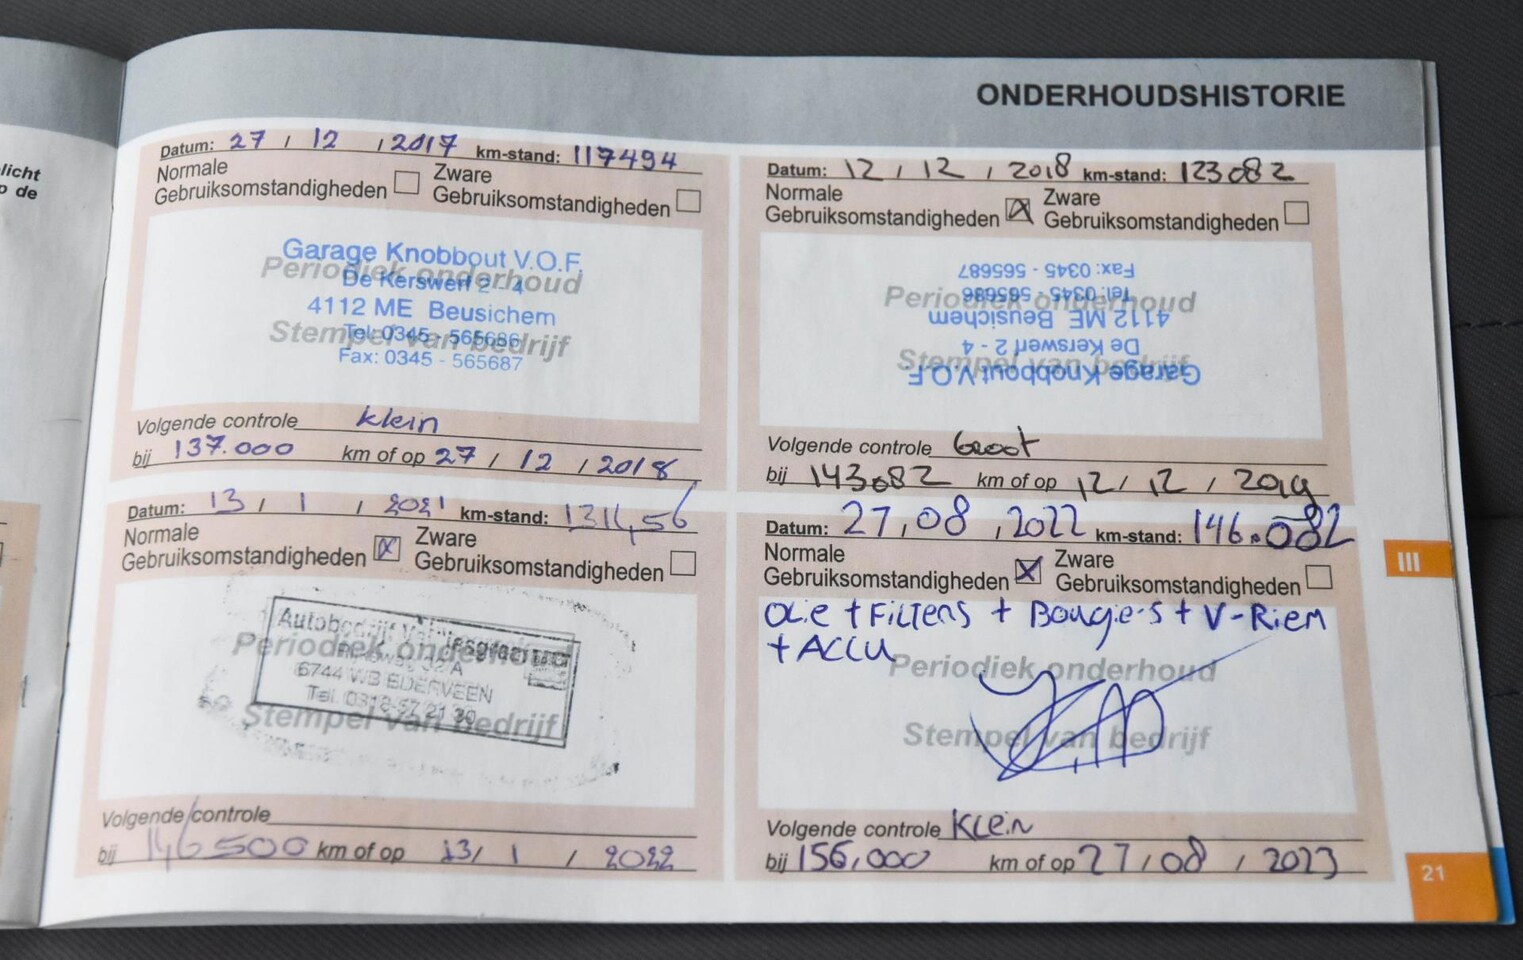 licht
p de
ONDERHOUDSHISTORIE
Datum: 27 / 12 / 2017 km-stand: 117494
Normale
Gebruiksomstandigheden
Zware
Gebruiksomstandigheden
Garage Knobbout V.O.F.
Periodiek onderhoud
De Kerswerf 2 - 4
4112 ME Beusichem
Stempel van bedrijf
Tel: 0345 - 565686
Fax: 0345 - 565687
Volgende controle klein
bij 137.000 km of op 27 / 12 / 2018
Datum: 12 / 12 / 2018 km-stand: 123082
Normale
Gebruiksomstandigheden
Zware
Gebruiksomstandigheden
Fax: 0345 - 565687
Tel: 0345 - 565686
Periodiek onderhoud
4112 ME Beusichem
De Kerswerf 2 - 4
Stempel van bedrijf
Garage Knobbout V.O.F.
Volgende controle Groot
bij 143082 km of op 12 / 12 / 2019
Datum: 13 / 1 / 2021 km-stand:
Normale
Gebruiksomstandigheden
Zware
Gebruiksomstandigheden
Autobedrijf
Periodiek onderhoud
6744 WB EDERVEEN
Tel. 0318-57 21 30
Stempel van bedrijf
Volgende controle
bij 146500 km of op 13 / 1 / 2022
Datum: 27 / 08 / 2022 km-stand: 146.082
Normale
Gebruiksomstandigheden
Zware
Gebruiksomstandigheden
OLie + FiLTERS + BougieS + V-Riem
+ ACCU
Periodiek onderhoud
Stempel van bedrijf
Volgende controle KLein
bij 156,000 km of op 27 / 08 / 2023
III
21